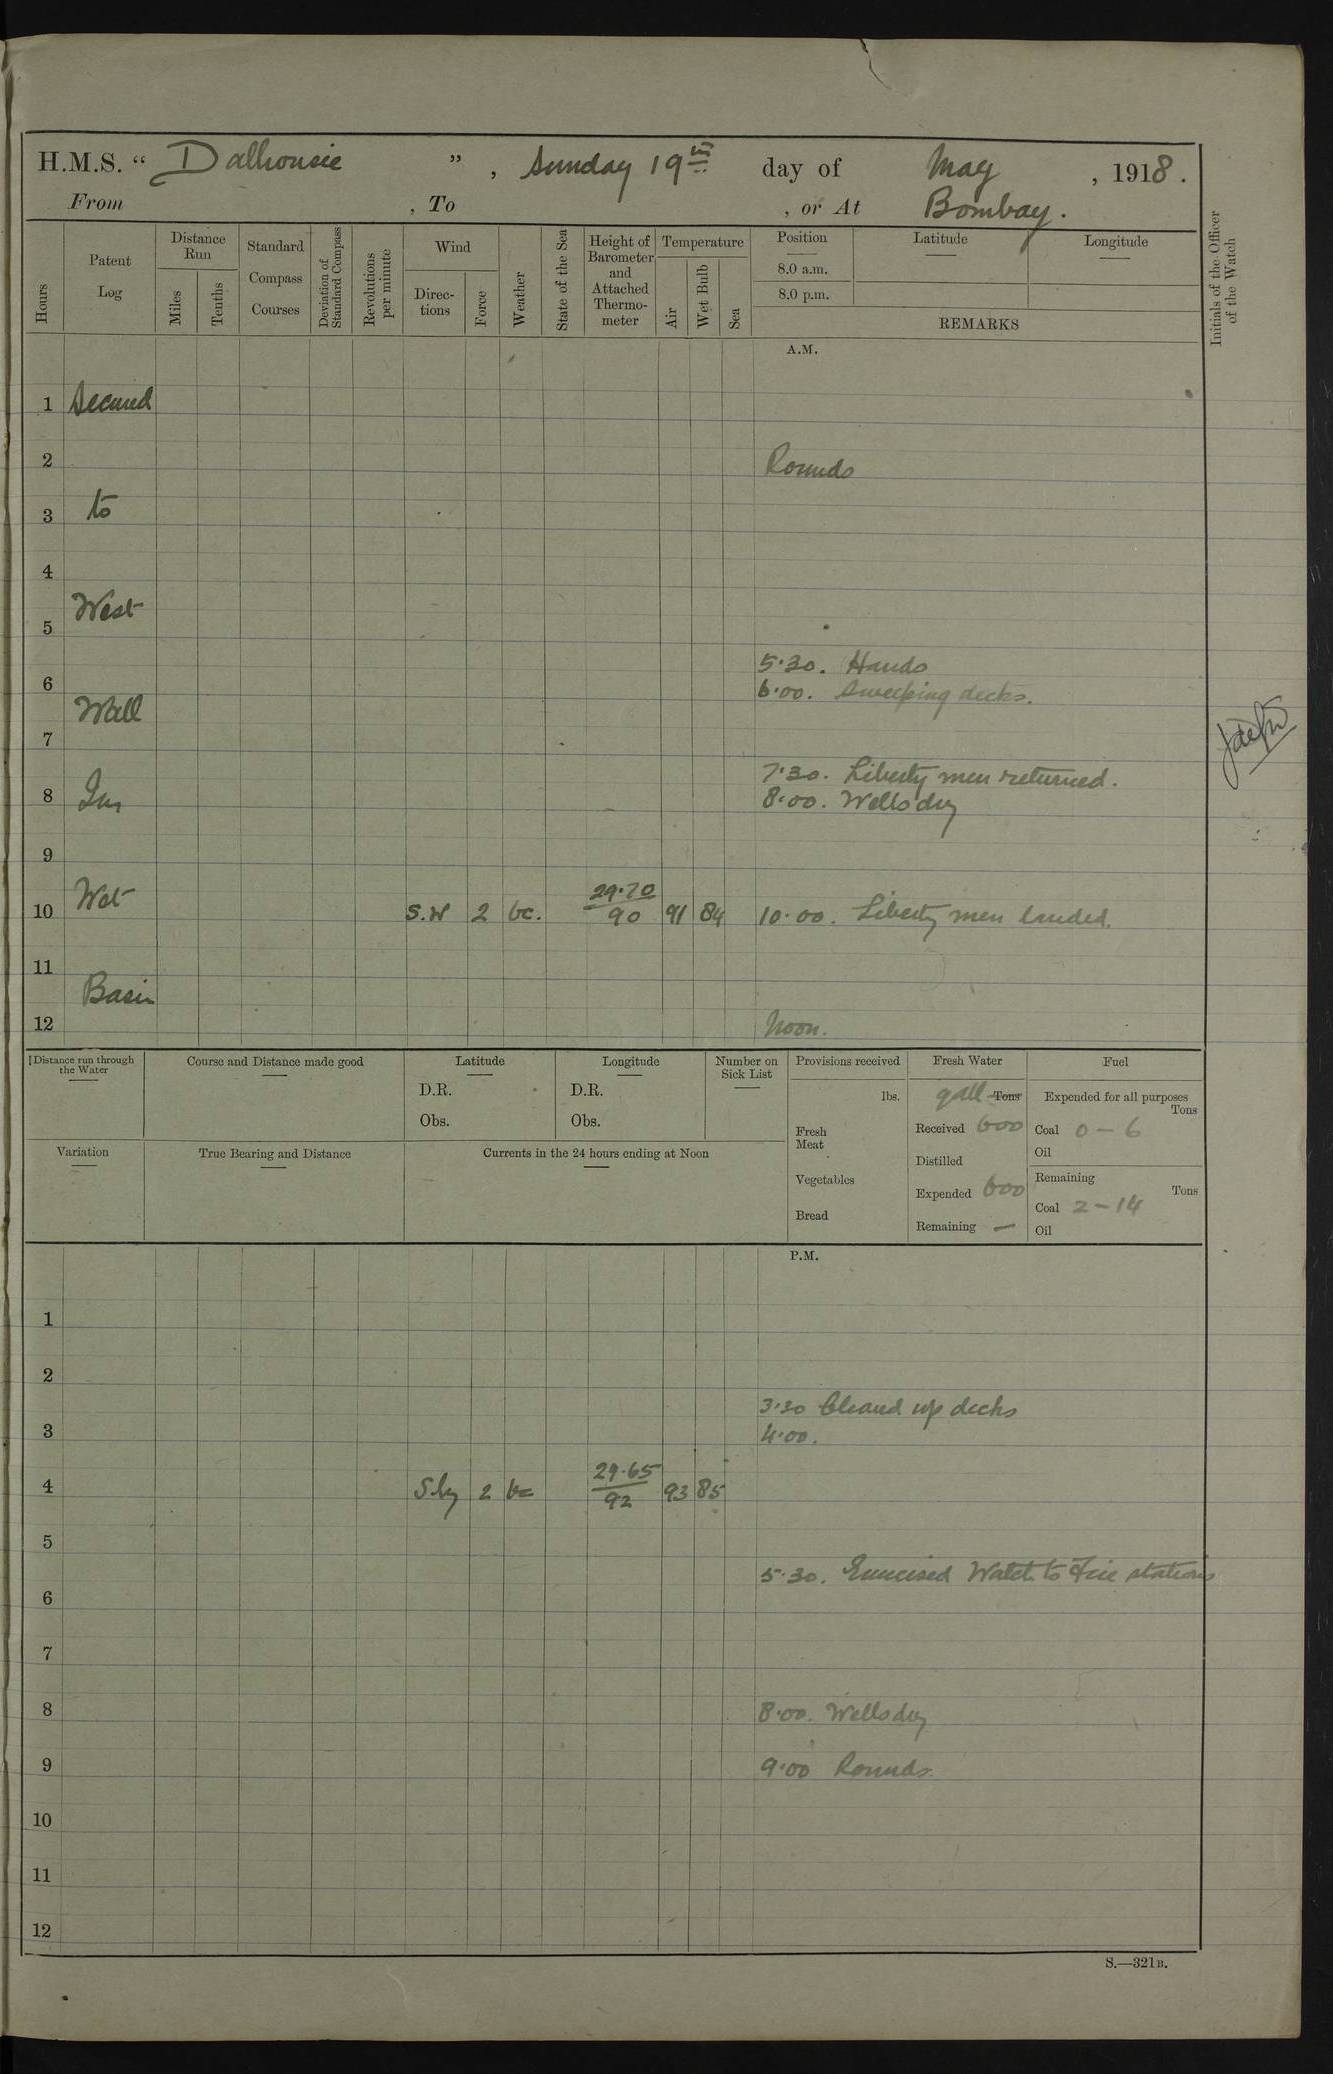 H.M.S. “ Dalhousie ” , Sunday 19th day of May , 1918 .
From , To , or At Bombay .
Hours
Patent Log
Distance Run
Miles
Tenths
Standard Compass Courses
Deviation of Standard Compass
Revolutions per minute
Wind
Direc-tions
Force
Weather
State of the Sea
Height of Barometer and Attached Thermo-meter
Temperature
Air
Wet Bulb
Sea
Position
8.0 a.m.
8.0 p.m.
Latitude
Longitude
REMARKS
Initials of the Officer of the Watch
A.M.
1 Secured
2 Rounds
3 to
4
West
5
5.30. Hands
6 6.00. Sweeping decks.
Wall
7
7.30. Liberty men returned.
8 In 8.00. Wells dry
9
Wet 29.70
10 S.W 2 bc. 90 91 84 10.00. Liberty men landed.
11
Basin
12 Noon.
Distance run through the Water
Course and Distance made good
Latitude
D.R.
Obs.
Longitude
D.R.
Obs.
Number on Sick List
Provisions received
lbs.
Fresh Meat
Vegetables
Bread
Fresh Water
gall Tons
Received 600
Distilled
Expended 600
Remaining —
Fuel
Expended for all purposes
Tons
Coal 0 – 6
Oil
Remaining
Tons
Coal 2 – 14
Oil
Variation
True Bearing and Distance
Currents in the 24 hours ending at Noon
P.M.
1
2
3.30 Cleand up decks
3 4.00.
29.65
4 S.ly 2 bc 92 93 85
5
5.30. Exercised Watch to Fire stations
6
7
8 8.00. Wells dry
9 9.00 Rounds.
10
11
12
S.—321B.